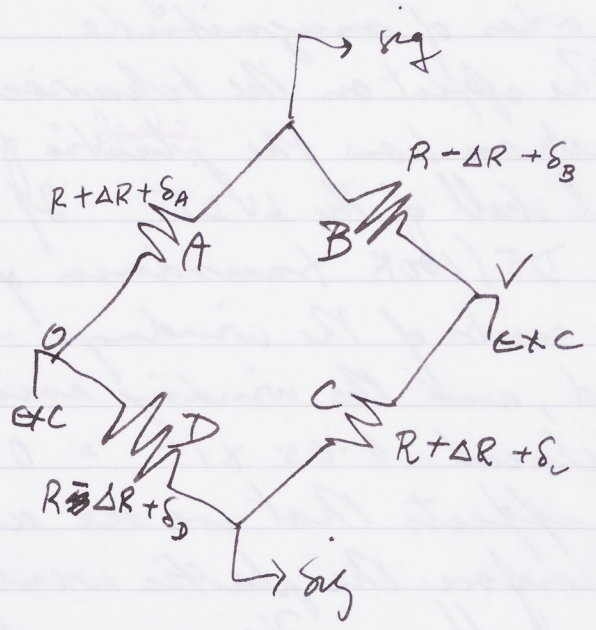 sig
R + ΔR + δA
R - ΔR + δB
A
B
O
V
EXC
EXC
C
D
R + ΔR + δC
R - ΔR + δD
sig